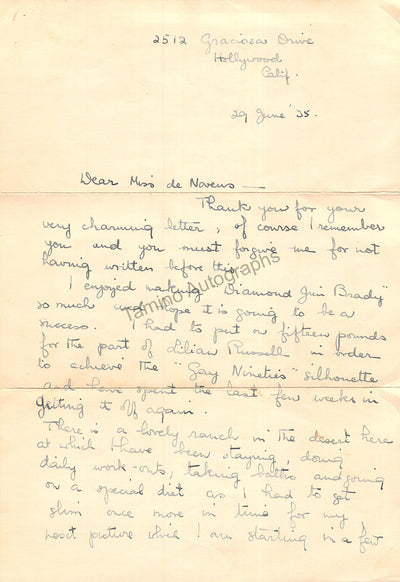 2512 Graciosa Drive
Hollywood
Calif.
29 June '35.
Dear Miss de Novens —
Thank you for your
very charming letter, of course I remember
you and you must forgive me for not
having written before this.
I enjoyed making "Diamond Jim Brady"
so much and hope it is going to be a
success. I had to put on fifteen pounds
for the part of Lilian Russell in order
to achieve the "Gay Nineties" silhouette
and have spent the last few weeks in
getting it off again.
There is a lovely ranch in the desert here
at which I have been staying, doing
daily work-outs, taking baths and going
on a special diet as I had to get
slim once more in time for my
next picture which I am starting in a few
Tamino Autographs